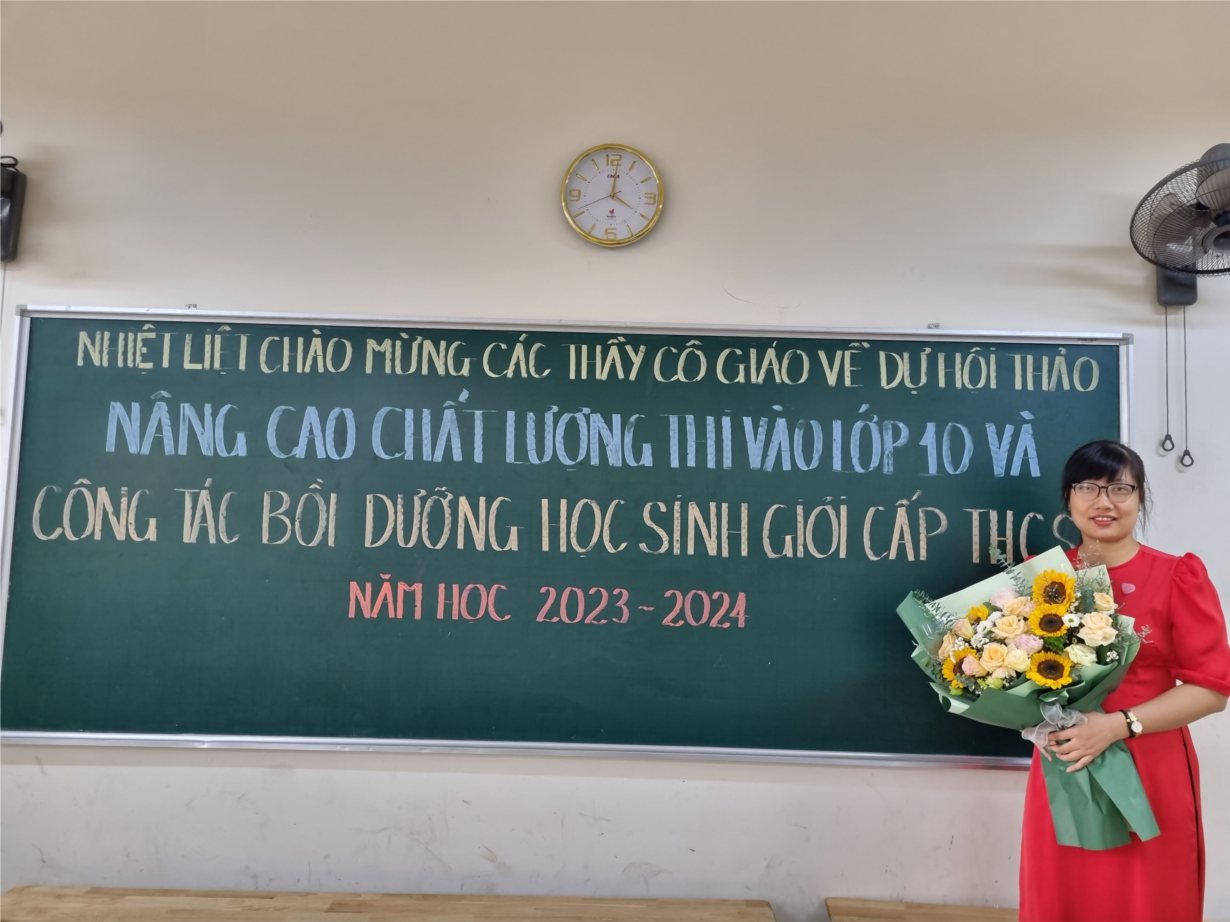 12
3
6
9
NHIỆT LIỆT CHÀO MỪNG CÁC THẦY CÔ GIÁO VỀ DỰ HỘI THẢO
NÂNG CAO CHẤT LƯỢNG THI VÀO LỚP 10 VÀ
CÔNG TÁC BỒI DƯỠNG HỌC SINH GIỎI CẤP THCS
NĂM HỌC 2023 - 2024